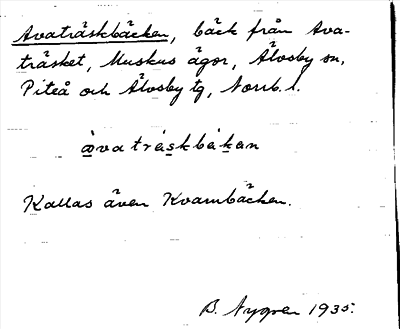 Avaträskbäcken, bäck från Ava-
träsket, Muskus ägor, Älvsby sn,
Piteå och Älvsby tg, Norrb. l.
àvatráskbäkan
Kallas även Kvarnbäcken.
B. Nygren 1935.